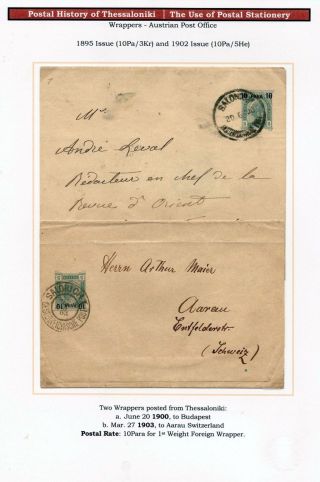 Postal History of Thessaloniki | The Use of Postal Stationery
Wrappers - Austrian Post Office
1895 Issue (10Pa/3Kr) and 1902 Issue (10Pa/5He)
10 PARA 10
SALONICH
Mr
André Leval
Rédacteur en chef de la
Revue d'Orient
Herrn Arthur Maier
Aarau
(Schweiz)
10 PARA 10
SALONICH
Two Wrappers posted from Thessaloniki:
a. June 20 1900, to Budapest
b. Mar. 27 1903, to Aarau Switzerland
Postal Rate: 10Para for 1st Weight Foreign Wrapper.